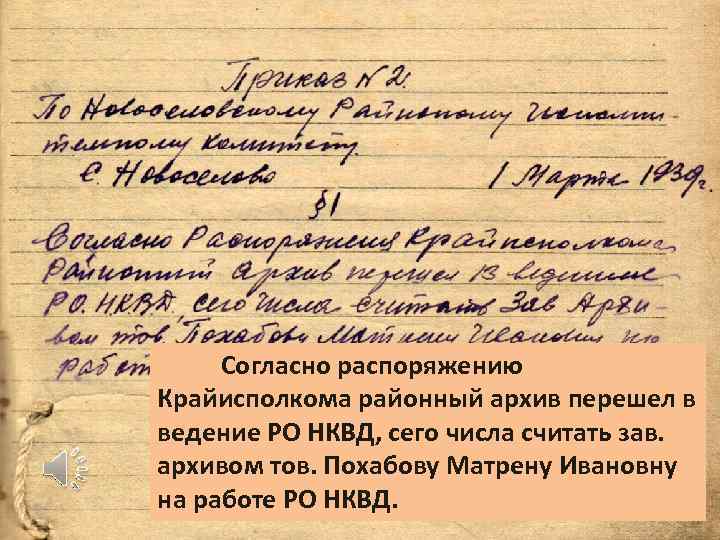 Приказ N 2.
По Новоселовскому Районному Исполни-
тельному комитету.
с. Новоселово 1 Марта 1939 г.
§ 1
Согласно Распоряжения Крайисполкома
Районный Архив перешел в ведение
РО. НКВД, сего числа считать Зав Архи-
вом тов. Похабову Матрену Ивановну на
работ
Согласно распоряжению
Крайисполкома районный архив перешел в
ведение РО НКВД, сего числа считать зав.
архивом тов. Похабову Матрену Ивановну
на работе РО НКВД.